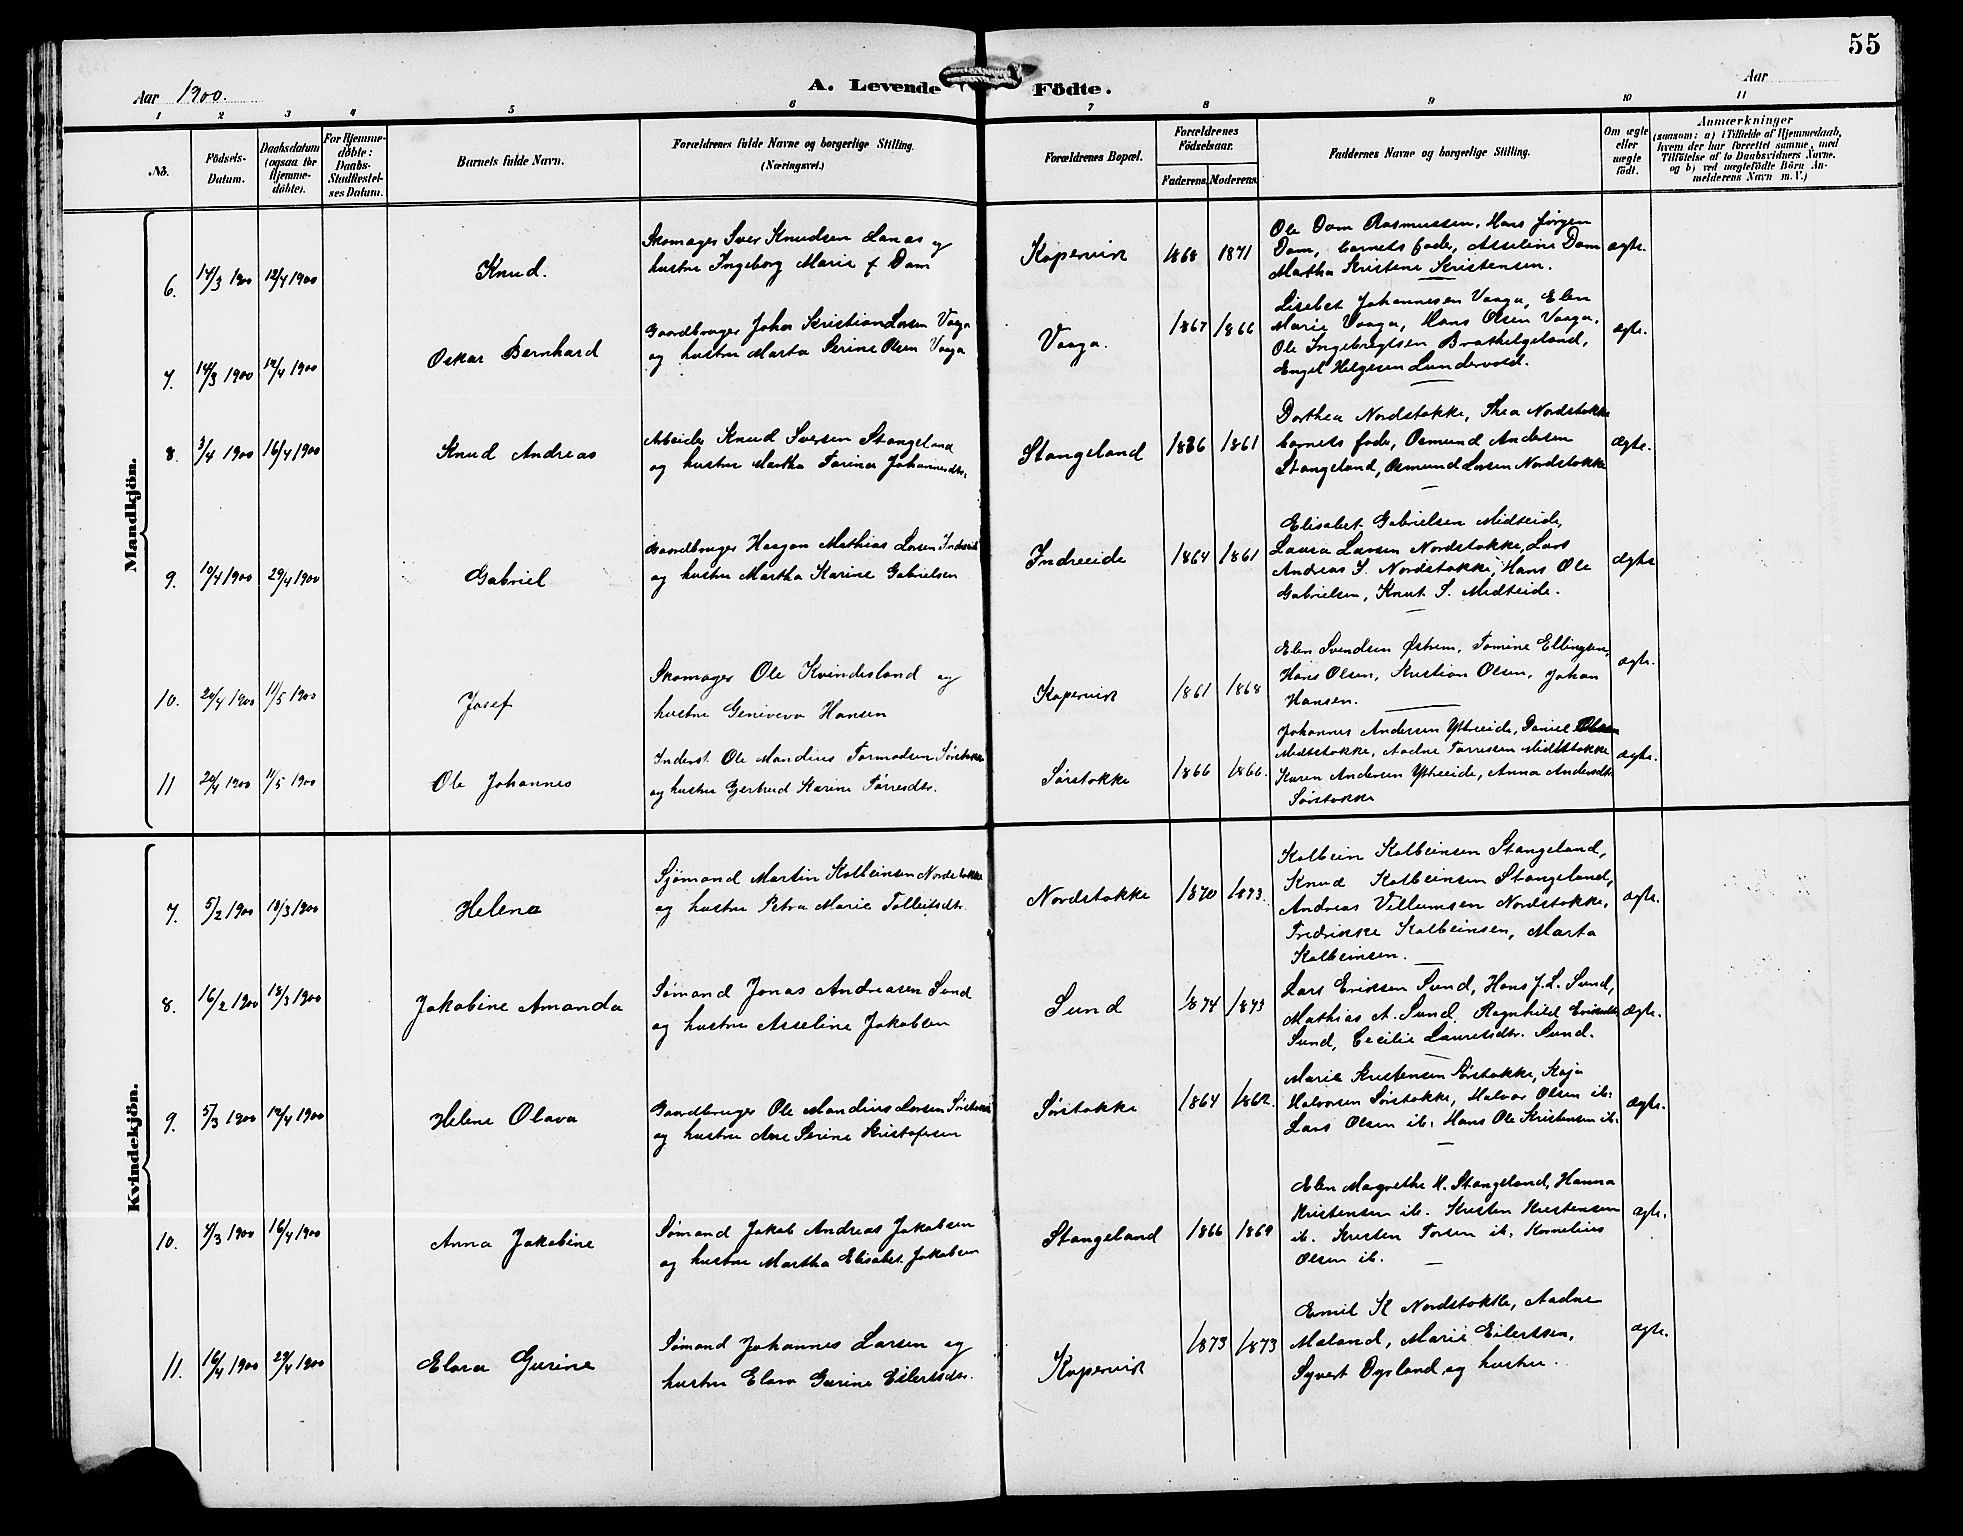 55
Aar 1900.
A. Levende Födte.
Aar
1 2 3 4 5 6 7 8 9 10 11
No.
Födsels-Datum.
Daabsdatum (ogsaa for Hjemmedöbte).
For Hjemmedöbte: Daabs-Stadfæstelses Datum.
Barnets fulde Navn.
Forældrenes fulde Navne og borgerlige Stilling.
(Næringsvei.)
Forældrenes Bopæl.
Forældrenes Födselsaar.
Faderens. Moderens.
Faddernes Navne og borgerlige Stilling.
Om ægte eller uægte födt.
Anmærkninger
(saasom: a) i Tilfælde af Hjemmedaab, hvem der har forrettet samme, med Tilföielse af to Daabsvidners Navne, og b) ved uægtefödte Börn Anmelderens Navn m. V.)
Mandkjön.
6. 14/3 1900 12/4 1900 Knud.
Skomager Sver Knudsen Lanas og
hustru Ingeborg Marie f Dam
Kopervik 1868 1871
Ole Dam Rasmussen, Hans Jørgen
Dam, barnets fader, Asseline Dam
Martha Kristene Kristensen.
ægte.
7. 14/3 1900 12/4 1900 Oskar Bernhard
Gaardbruger Johan Kristian Larsen Vaaga
og hustru Marta Serine Olsen Vaaga
Vaaga. 1867 1866
Lisebet Johannesen Vaaga, Elen
Marie Vaaga, Hans Olsen Vaaga,
Ole Ingebregtsen Brathelgeland,
Engel Helgesen Lundervold.
ægte.
8. 3/4 1900 16/4 1900 Knud Andreas
Arbeider Knud Sversen Stangeland
og hustru Martha Tarina Johannesdtr.
Stangeland 1836 1861
Dorthea Nordstokke, Thea Nordstokke
barnets fader, Osmund Andersen
Stangeland, Osmund Larsen Nordstokke
ægte.
9. 10/4 1900 29/4 1900 Gabriel
Gaardbruger Haagon Mathias Larsen Indreeide
og hustru Martha Karine Gabrielsen
Indreeide 1864 1861
Elisabet Gabrielsen Midteide,
Laura Larsen Nordstokke, Lars
Andreas S. Nordstokke, Hans Ole
Gabrielsen, Knut S. Midteide.
ægte
10. 20/4 1900 11/5 1900 Josef
Skomager Ole Kvindesland og
hustru Geniveva Hansen
Kopervik 1861 1868
Elen Svendsen Østrem, Tomine Ellingsen,
Hans Olsen, Kristian Olsen, Johan
Hansen.
ægte.
11 20/4 1900 11/5 1900 Ole Johannes
Inderst Ole Mandius Tormodsen Sørstokke
og hustru Gertrud Karine Tørresdtr.
Sørstokke 1866 1866.
Johannes Andersen Ytreeide, Daniel Olsen
Midtstokke, Aadne Tørresen Midtstokke
Karen Andersen Ytreeide, Anna Andersdtr
Sørstokke
ægte.
Kvindekjön.
7. 5/2 1900 18/3 1900 Helena
Sjømand Martin Kolbeinsen Nordstokke
og hustru Petra Marie Tolleifsdtr.
Nordstokke 1870 1873.
Kolbein Kolbeinsen Stangeland,
Knud Kolbeinsen Stangeland,
Andreas Villumsen Nordstokke,
Fredrikke Kolbeinsen, Marta
Kolbeinsen.
ægte.
8. 16/2 1900 18/3 1900 Jakobine Amanda
Sømand Jonas Andreasen Sund
og hustru Asseline Jakobsen
Sund 1874 1873
Lars Eriksen Sund, Hans J. L. Sund,
Mathias A. Sund, Ragnhild Eriksdtr
Sund, Cecilie Lauretsdtr. Sund.
ægte.
9. 5/3 1900 12/4 1900 Helene Olava
Gaardbruger Ole Mandius Larsen Sørstokke
og hustru Ane Serine Kristofersen
Sørstokke 1864 1862.
Marie Kristensen Sørstokke, Kaja
Halvorsen Sørstokke, Halvor Olsen ib.
Lars Olsen ib. Hans Ole Kristensen ib.
ægte.
10. 4/3 1900 16/4 1900 Anna Jakobine
Sømand Jakob Andreas Jakobsen
og hustru Martha Elisabet Jakobsen
Stangeland 1866 1869
Elen Margrethe K. Stangeland, Hanna
Kristensen ib. Kristen Kristensen
ib. Kristen Torsen ib. Kornelius
Olsen ib.
ægte.
11. 16/4 1900 29/4 1900 Elara Gurine
Sømand Johannes Larsen og
hustru Elara Gurine Eilertsdtr.
Kopervik 1873 1873
Emil K Nordstokke, Aadne
Maland, Marie Eilertsen,
Syvert Dysland og hustru.
ægte.